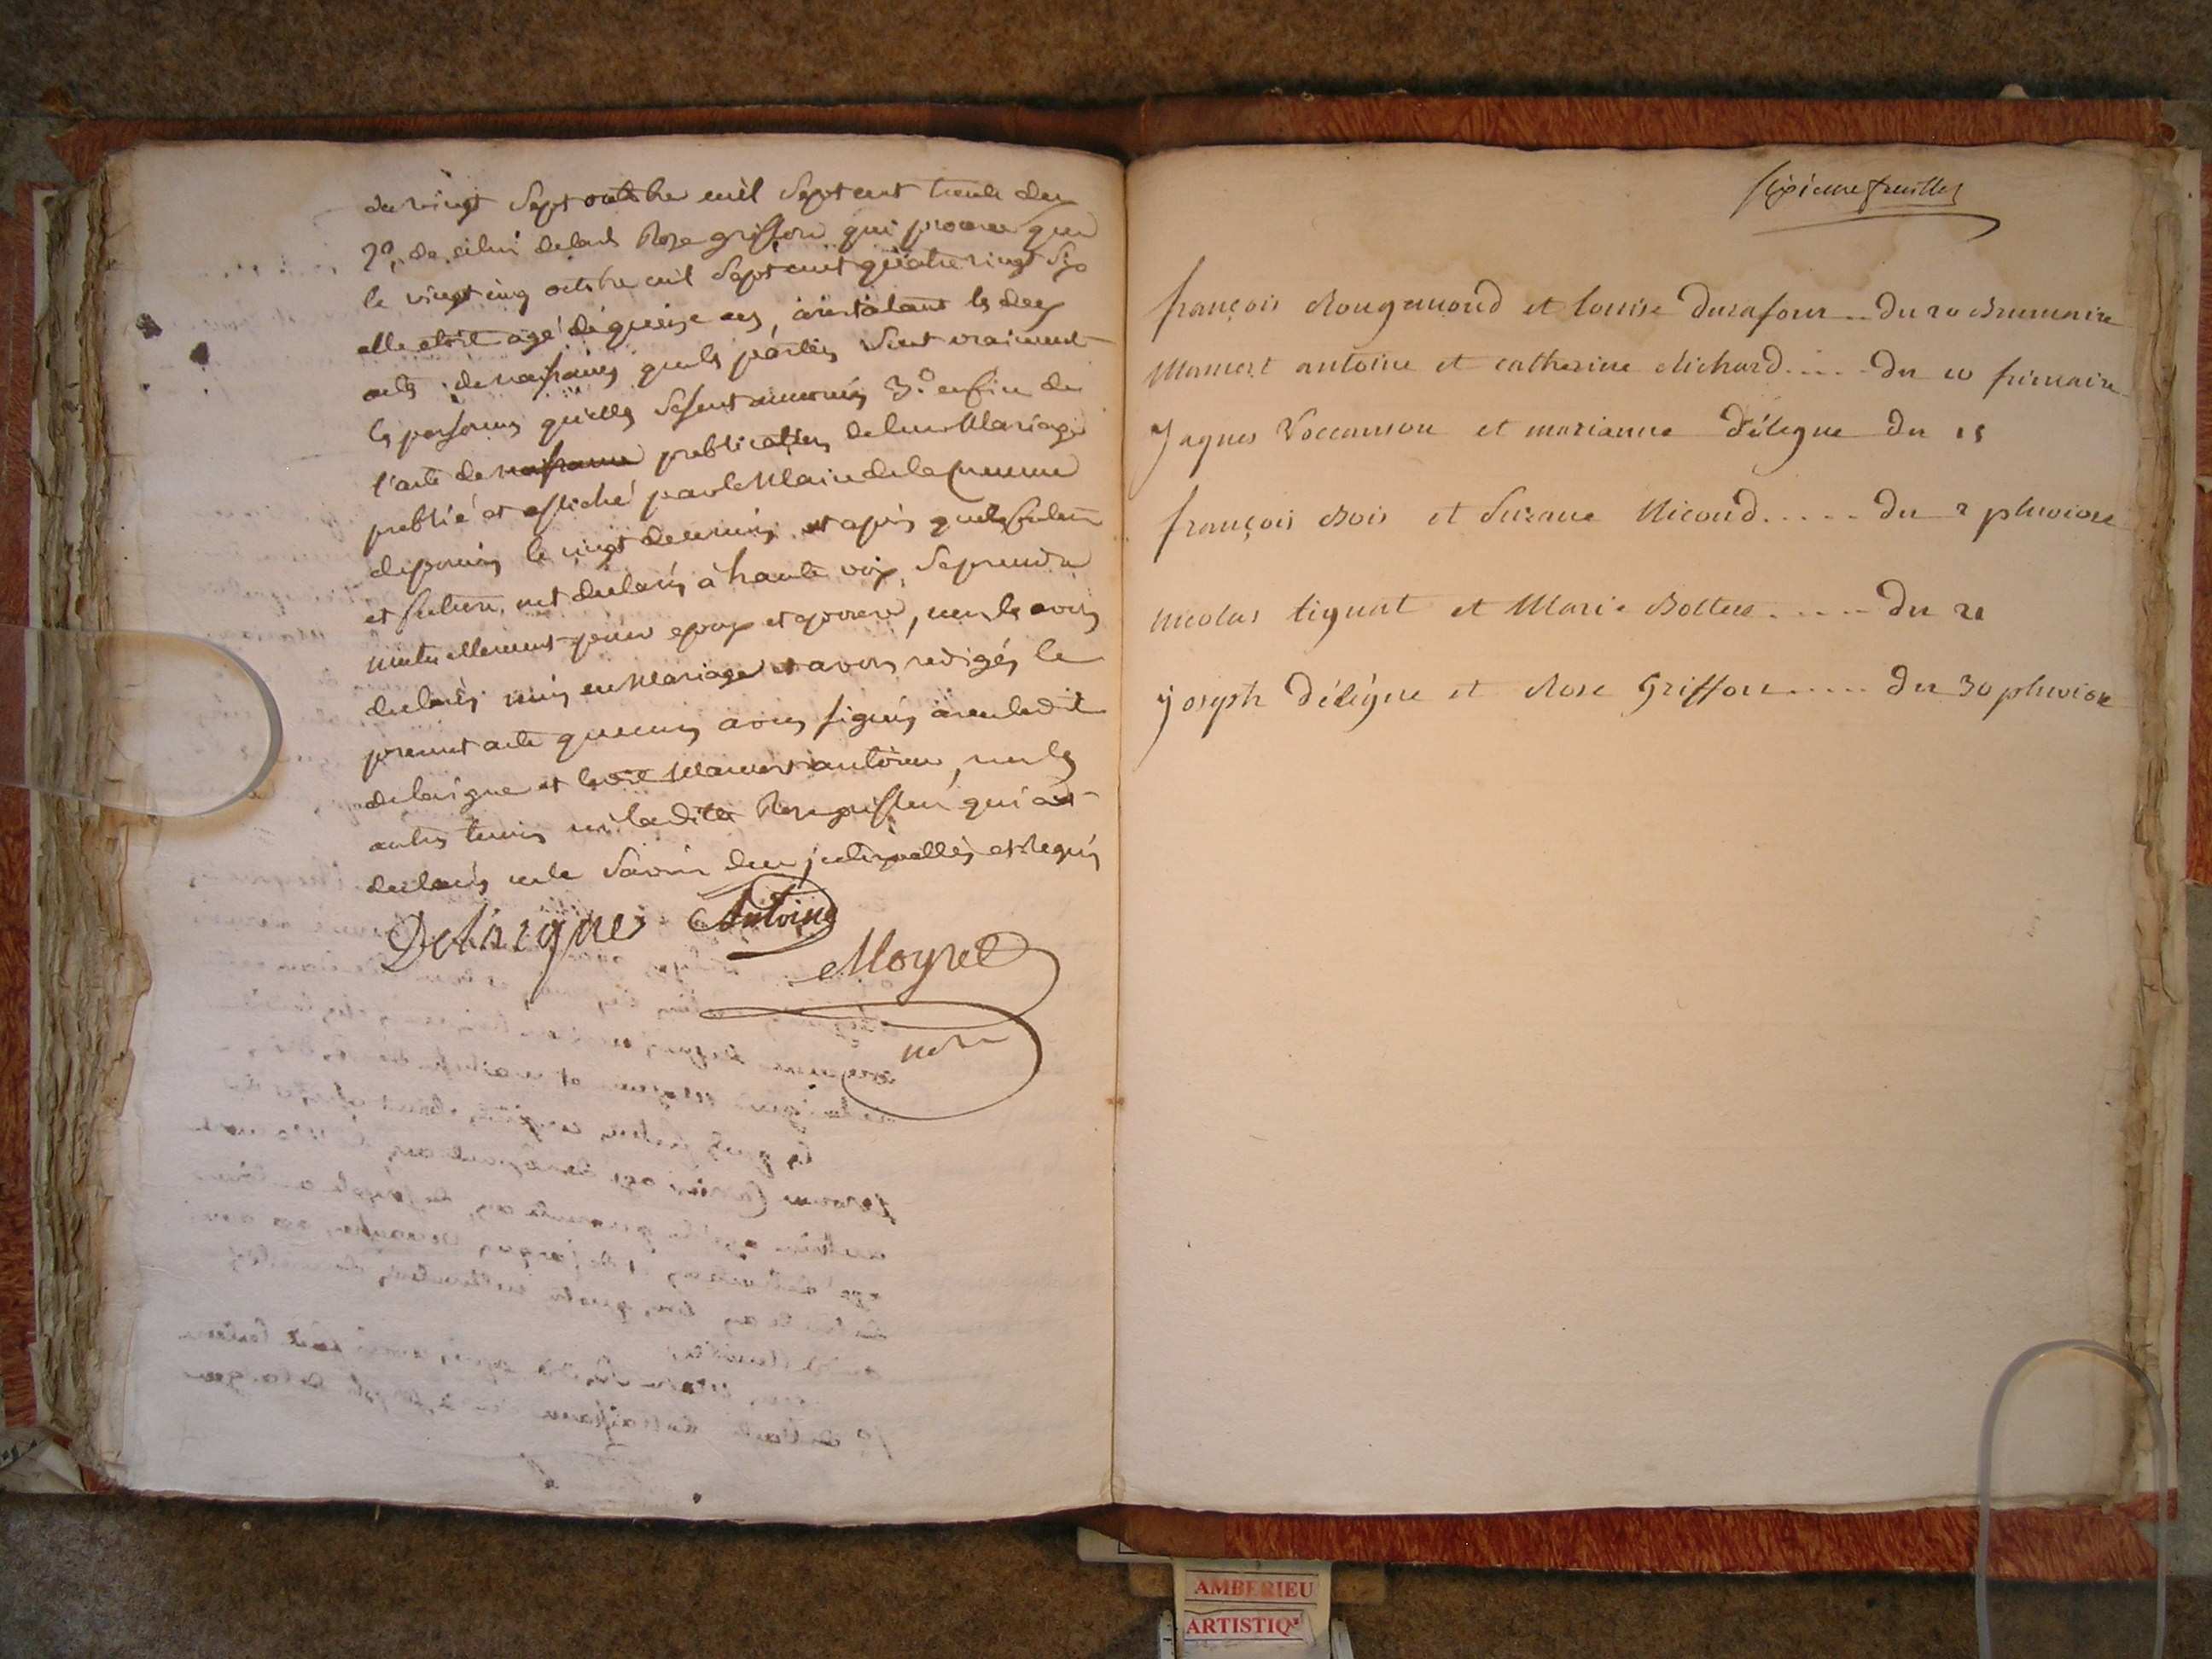 du vingt Sept octobre mil Sept cent trente deux
2o. de celui de lad. Rose griffon qui prouve que
le vingt cinq octobre mil Sept cent quatre vingt Six
elle etoit agé de quinze ans, les deux
acte de naissances que les parties Sont vraiment
les personnes qu'elles Se sont 3o. enfin de
l'acte de naissance publication de leur Mariage
publié et affiché par le Maire de la Commune
le vingt dernier et après que les futur
et future, ont déclarés à haute voix Se prendre
mutuellement pour epoux et epouse, nous les avons
déclarés unis en Mariage et avons redigés le
present acte que nous avons signés avec ledit
delaigne et led. Mamert antoine, non les
autres temoins ni ladite Rose griffon qui ont
déclarés ne le Savoir de ce interpellés et Requis
Delaigne Antoine
Moyret
sixieme feuillet
françois Rougemond et louise Durafour .. du 20 Brumaire
Mamert antoine et catherine Michard .... du 10 frimaire
Jaques Voccanson et marianne Délegne du 15
françois Bois et Suzane Nicoud ..... du 2 pluviose
nicolas tignat et Marie Bottex ..... du 21
joseph Délégne et Rose Griffon ..... du 30 pluviose
AMBERIEU
ARTISTIQ